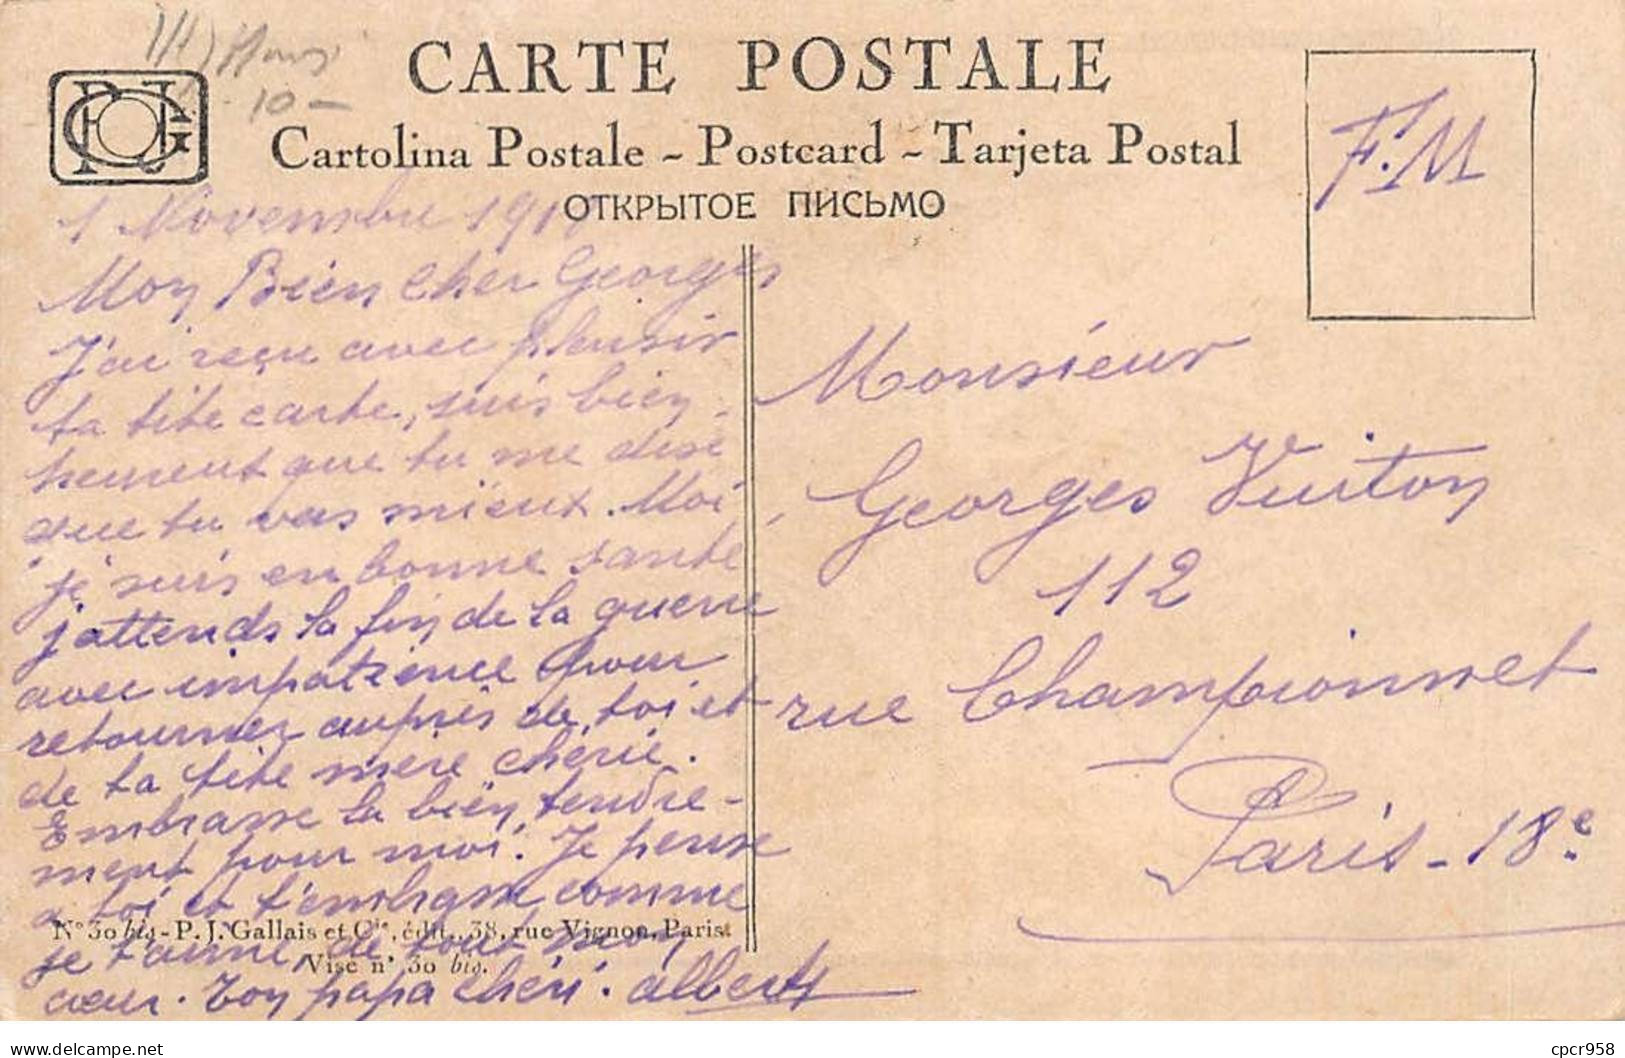 10 -
CARTE POSTALE
Cartolina Postale ~ Postcard ~ Tarjeta Postal
ОТКРЫТОЕ ПИСЬМО
F.M
1 Novembre
Mon Bien cher Georges
J'ai reçu avec plaisir
ta tite carte, suis bien
que tu me dise
que tu vas mieux. Moi,
je suis en bonne santé
j'attends la fin de la guerre
avec impatience pour
retourner auprès de toi et
de ta tite mère chérie.
Embrasse la bien tendre-
ment pour moi. Je pense
a toi et t'embrasse comme
je t'aime de tout mon
cœur. Ton papa chéri. Albert
N° 30 bis - P. J. Gallais et Cie, édit., 38, rue Vignon, Paris
Visé n° 30 bis.
Monsieur
Georges Vuiton
112
rue Championnet
Paris - 18e
delcampe.net
cpcr958